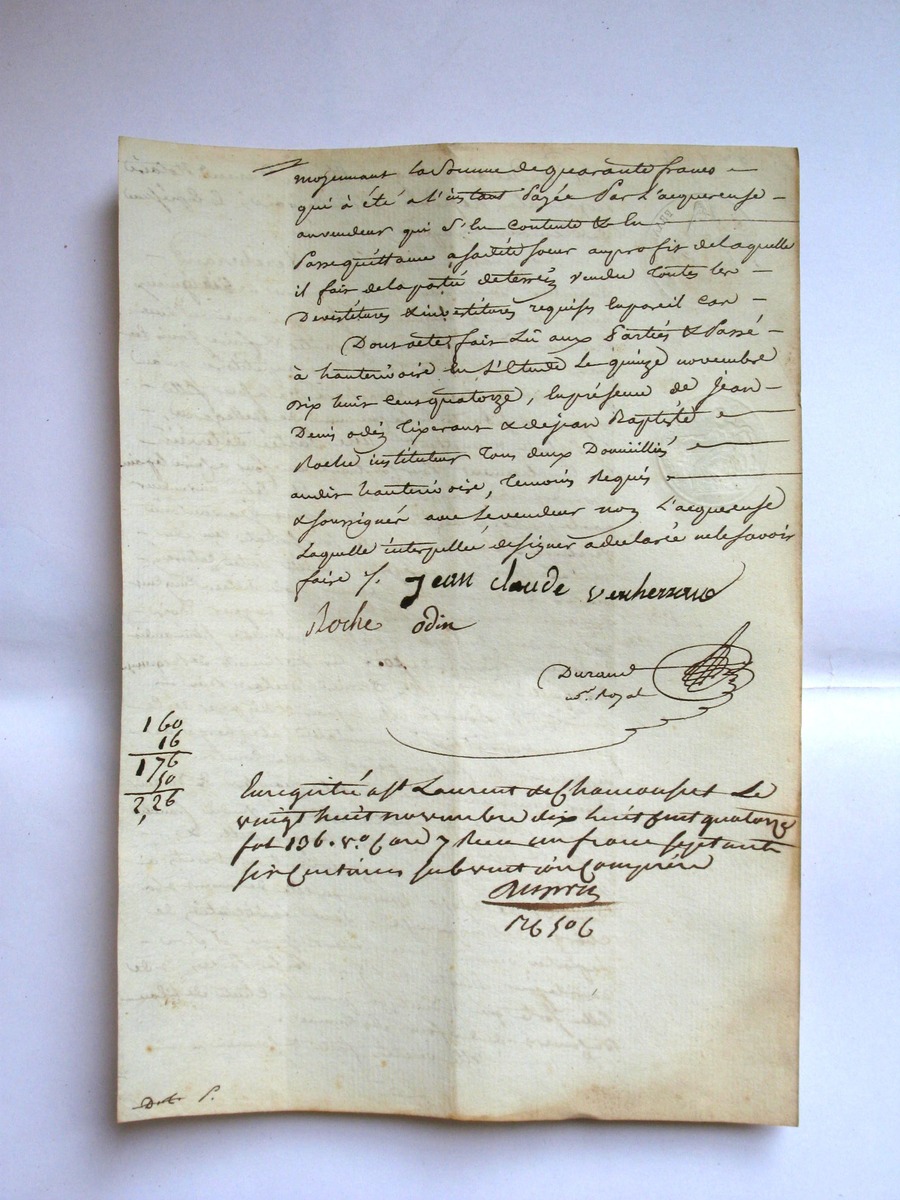 moyennant la somme de quarante francs
qui à été a l'instant Payée Par L'acquereuse
au vendeur qui S'en contente & en
Passe quittance a sadite Soeur au profit de laquelle
il fait de la partie de terrein vendue Toutes les
Devestitures & investitures requises En pareil cas
Dont acte, fait Lû aux Parties & Passé
à hauterivoire En L'Etude Le quinze novembre
dix huit Cent quatorze, En présence de Jean
Denis odin Tixerant & de jean Baptiste
Roche instituteur Tous deux Domiciliés
audit hauterivoire, Temoins Requis
& soussignés avec Le vendeur non L'acquereuse
Laquelle interpellée de signer a declarée ne le Savoir
faire /.
Jean claude
Roche odin
Durand
nre. Royal
160
16
176
50
2,26
Enregistré a St Laurent de Chamousset Le
vingt huit novembre dix huit cent quatorze
fol 136. vo. Case 7 Recu un franc septante
six Centimes subvention Comprise
176 50 6